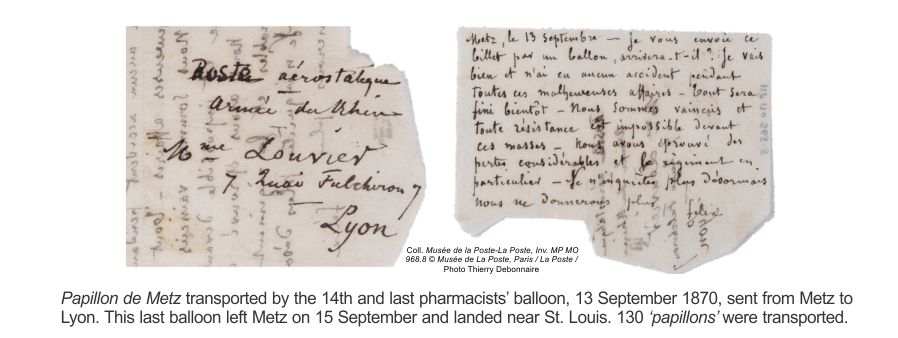 Poste aérostatique
Armée du Rhin
Mme Louvier
7 Quai Fulchiron 7
Lyon
Metz, le 13 Septembre – Je vous envoie ce
billet par un ballon, arrivera-t-il ? Je vais
bien et n'ai eu aucun accident pendant
toutes ces malheureuses affaires – tout sera
fini bientôt – Nous sommes vaincus et
toute résistance est impossible devant
ces masses – Nous avons éprouvé des
pertes considérables et le régiment en
particulier – Ne t'inquiète plus désormais
nous ne donnerons plus
félix
Coll. Musée de la Poste-La Poste, Inv. MP MO
968.8 © Musée de La Poste, Paris / La Poste /
Photo Thierry Debonnaire
Papillon de Metz transported by the 14th and last pharmacists' balloon, 13 September 1870, sent from Metz to
Lyon. This last balloon left Metz on 15 September and landed near St. Louis. 130 'papillons' were transported.